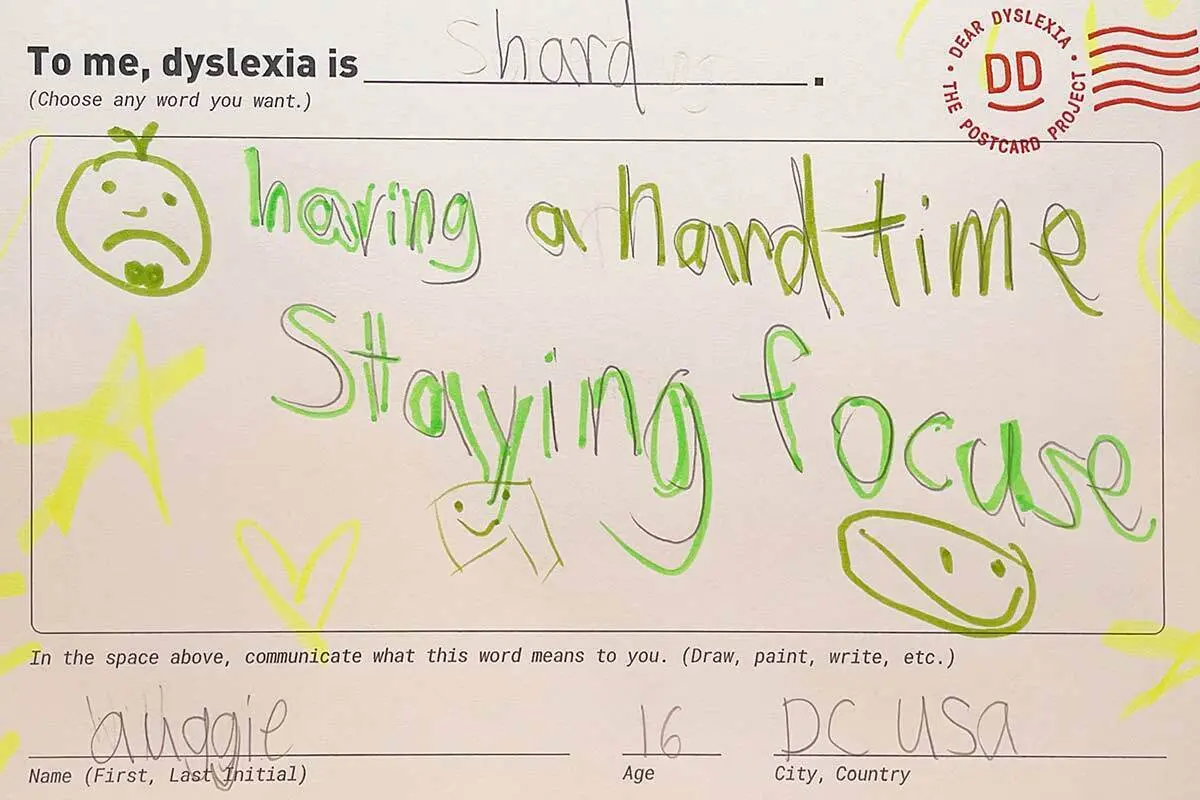 To me, dyslexia is shard.
(Choose any word you want.)
DEAR DYSLEXIA • THE POSTCARD PROJECT •
DD
having a hard time
Staying focuse
In the space above, communicate what this word means to you. (Draw, paint, write, etc.)
auggie 16 DC USA
Name (First, Last Initial) Age City, Country